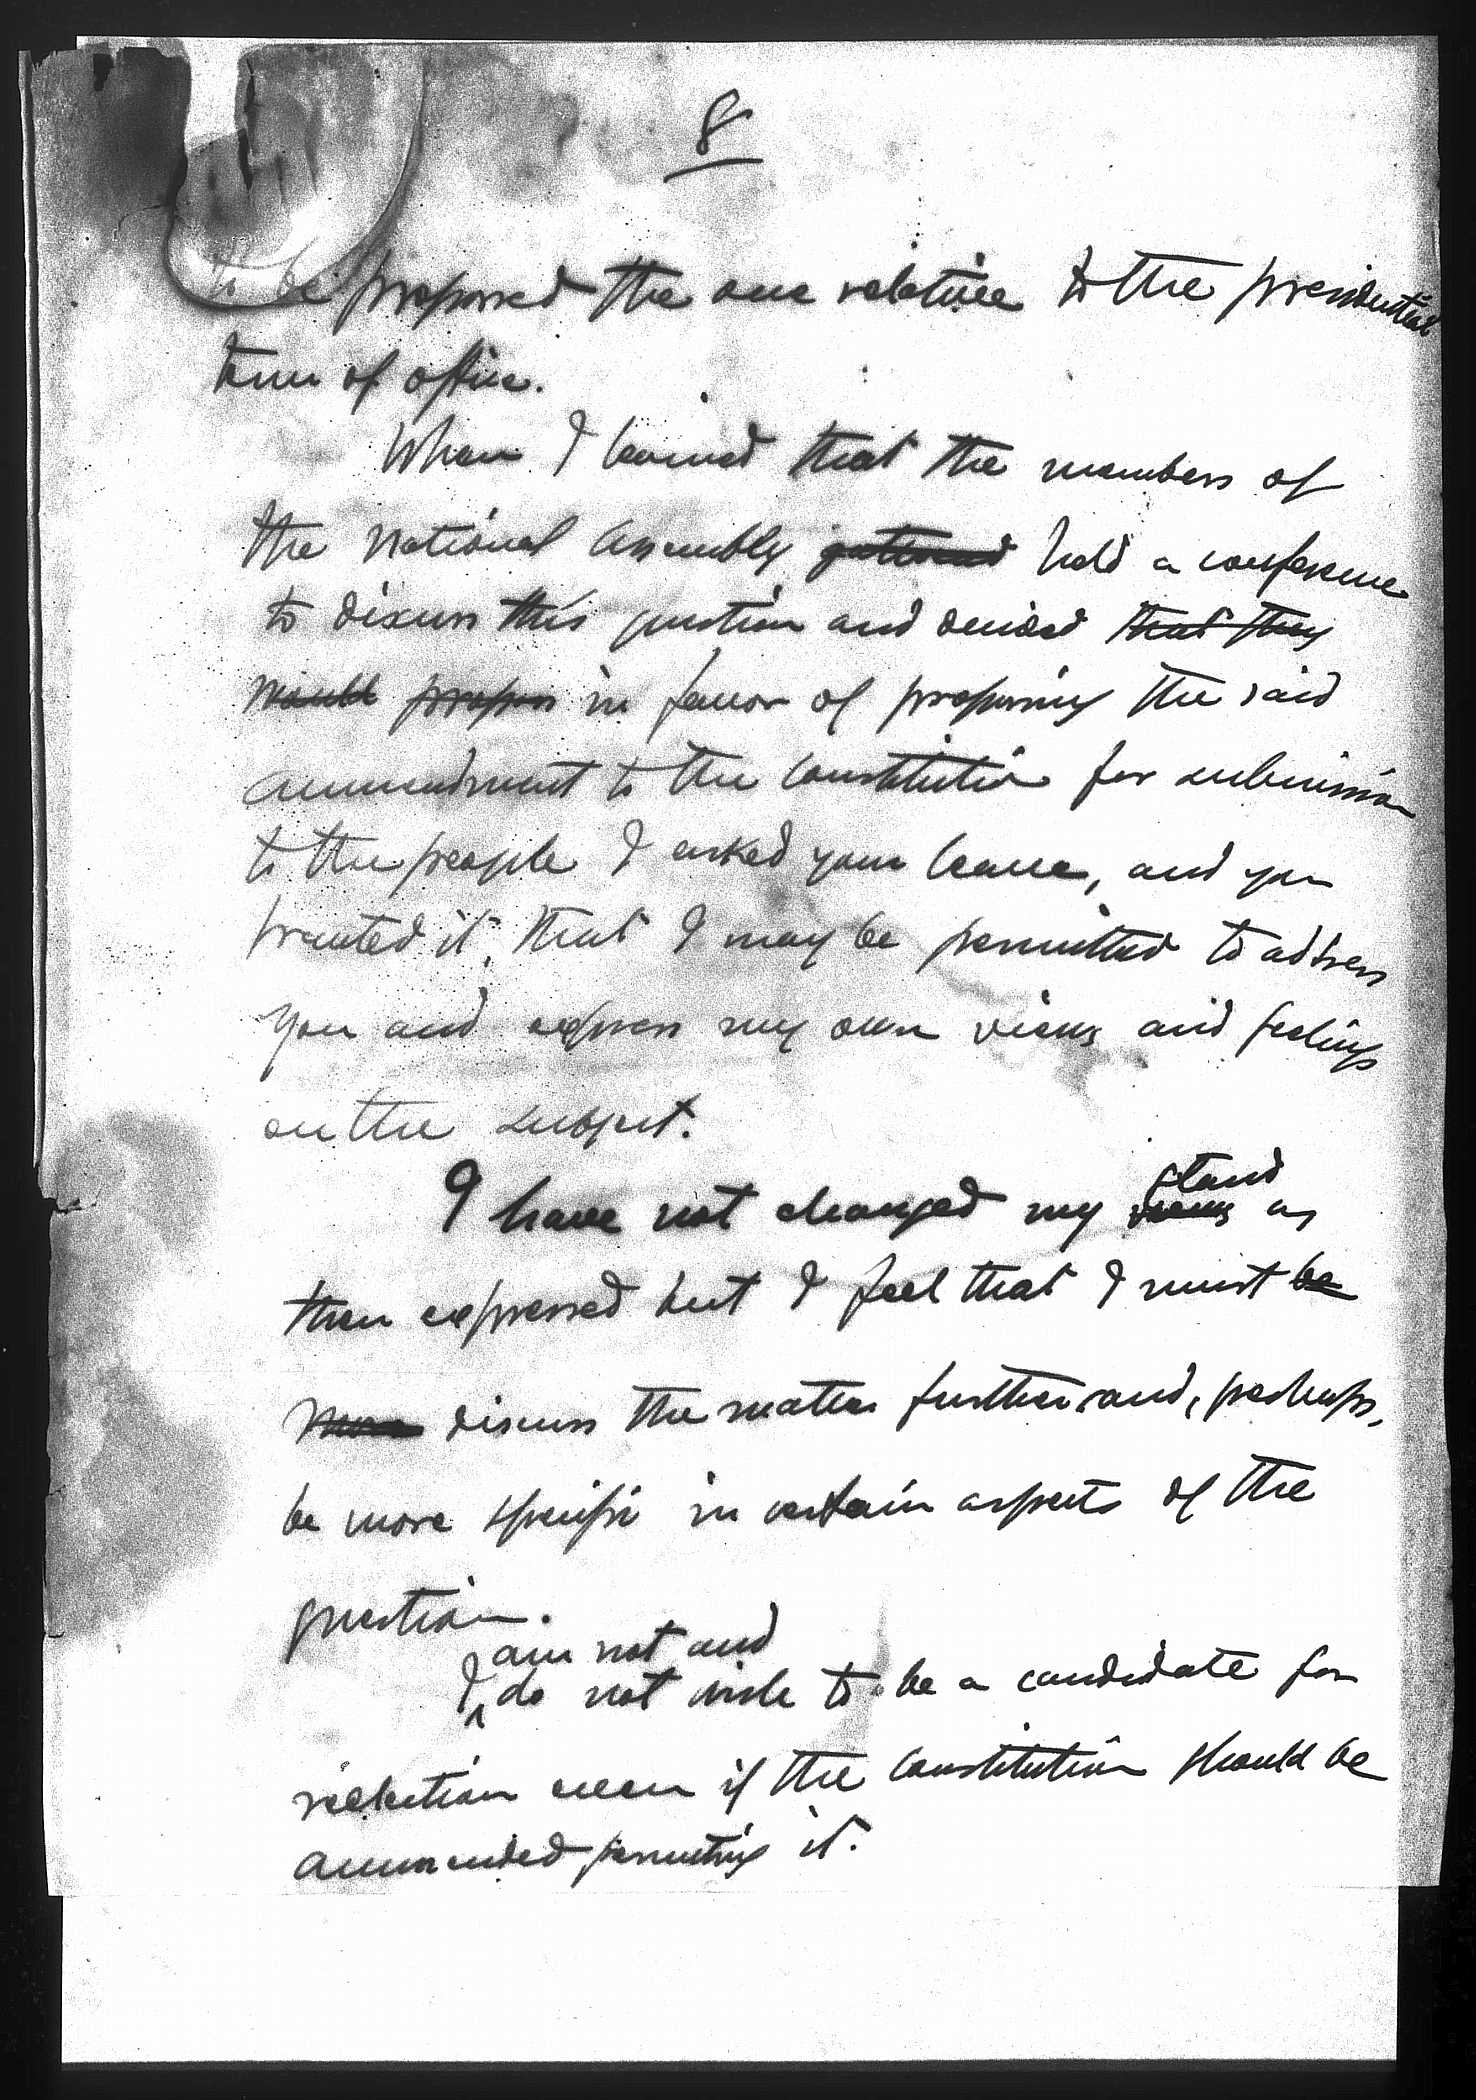 8
to be proposed the one relative to the presidential
term of office.
When I learned that the members of
the National Assembly gathered held a conference
to discuss this question and decided that they
would propose in favor of proposing the said
ammendment to the Constitution for submission
to the people I asked your leave, and you
granted it, that I may be permitted to address
you and express my own views and feelings
on the subject.
stand
I have not changed my views as
then expressed but I feel that I must be
more discuss the matter further and, perhaps,
be more specific in certain aspects of the
question.
am not and
I do not wish to be a candidate for
reelection even if the Constitution should be
ammended permitting it.